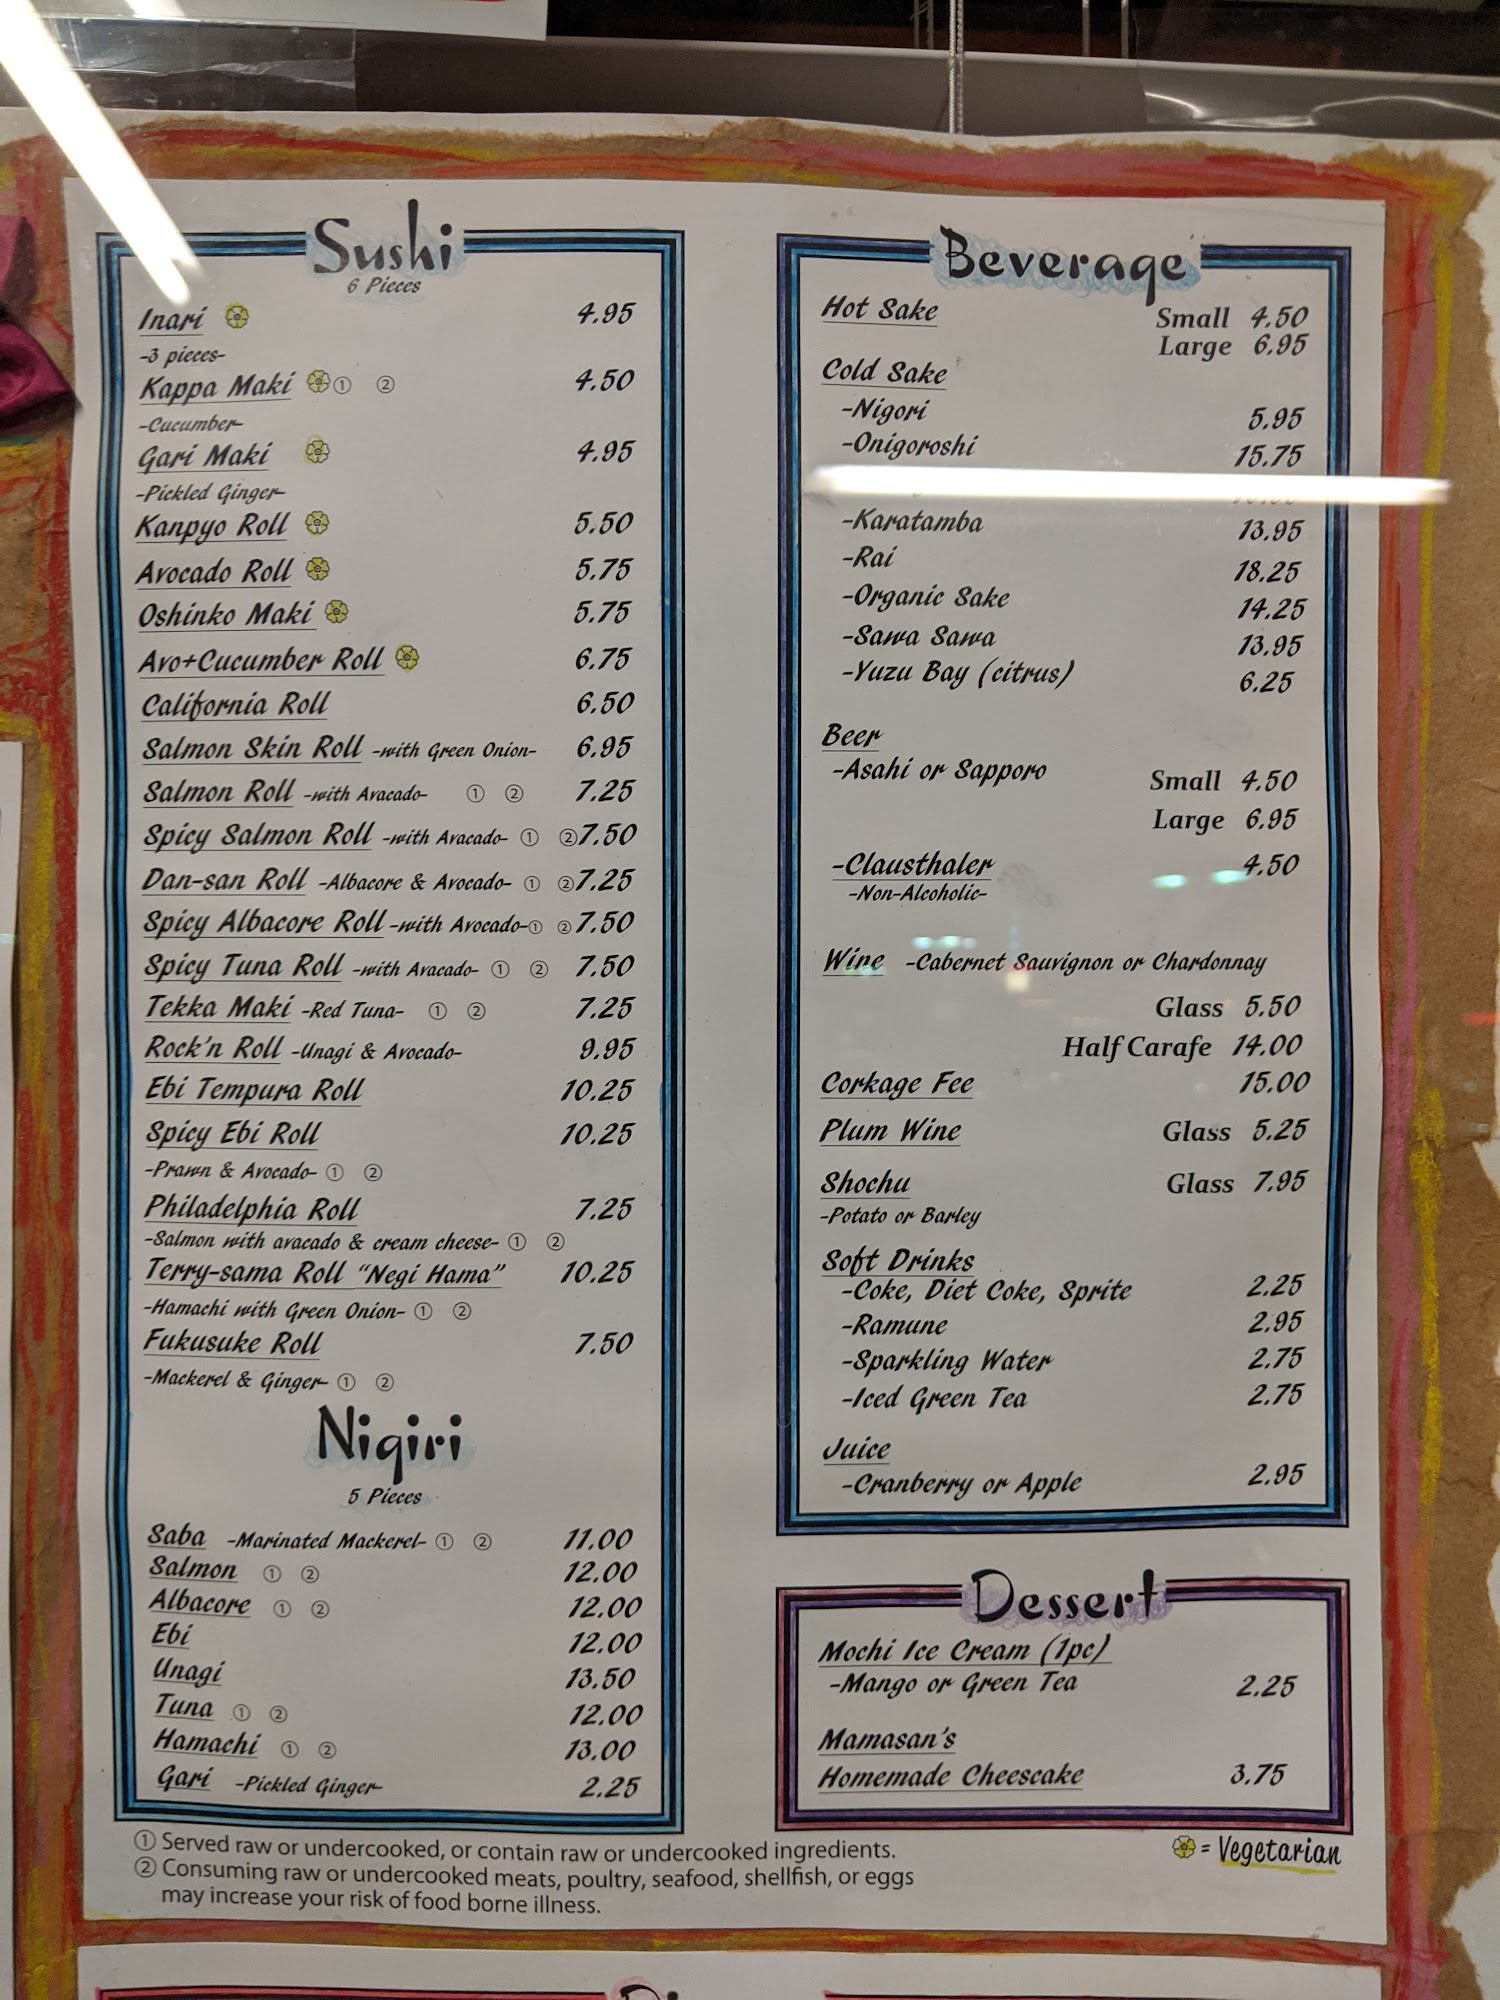 Sushi
6 Pieces
Inari 4.95
-3 pieces-
Kappa Maki ① ② 4.50
-Cucumber-
Gari Maki 4.95
-Pickled Ginger-
Kanpyo Roll 5.50
Avocado Roll 5.75
Oshinko Maki 5.75
Avo+Cucumber Roll 6.75
California Roll 6.50
Salmon Skin Roll -with Green Onion- 6.95
Salmon Roll -with Avacado- ① ② 7.25
Spicy Salmon Roll -with Avacado- ① ② 7.50
Dan-san Roll -Albacore & Avocado- ① ② 7.25
Spicy Albacore Roll -with Avocado- ① ② 7.50
Spicy Tuna Roll -with Avacado- ① ② 7.50
Tekka Maki -Red Tuna- ① ② 7.25
Rock'n Roll -Unagi & Avocado- 9.95
Ebi Tempura Roll 10.25
Spicy Ebi Roll 10.25
-Prawn & Avocado- ① ②
Philadelphia Roll 7.25
-Salmon with avacado & cream cheese- ① ②
Terry-sama Roll "Negi Hama" 10.25
-Hamachi with Green Onion- ① ②
Fukusuke Roll 7.50
-Mackerel & Ginger- ① ②
Nigiri
5 Pieces
Saba -Marinated Mackerel- ① ② 11.00
Salmon ① ② 12.00
Albacore ① ② 12.00
Ebi 12.00
Unagi 13.50
Tuna ① ② 12.00
Hamachi ① ② 13.00
Gari -Pickled Ginger- 2.25
① Served raw or undercooked, or contain raw or undercooked ingredients.
② Consuming raw or undercooked meats, poultry, seafood, shellfish, or eggs
may increase your risk of food borne illness.
Beverage
Hot Sake Small 4.50
Large 6.95
Cold Sake
-Nigori 5.95
-Onigoroshi 15.75
-Karatamba 13.95
-Rai 18.25
-Organic Sake 14.25
-Sawa Sawa 13.95
-Yuzu Bay (citrus) 6.25
Beer
-Asahi or Sapporo Small 4.50
Large 6.95
-Clausthaler 4.50
-Non-Alcoholic-
Wine -Cabernet Sauvignon or Chardonnay
Glass 5.50
Half Carafe 14.00
Corkage Fee 15.00
Plum Wine Glass 5.25
Shochu Glass 7.95
-Potato or Barley
Soft Drinks
-Coke, Diet Coke, Sprite 2.25
-Ramune 2.95
-Sparkling Water 2.75
-Iced Green Tea 2.75
Juice
-Cranberry or Apple 2.95
Dessert
Mochi Ice Cream (1pc)
-Mango or Green Tea 2.25
Mamasan's
Homemade Cheescake 3.75
= Vegetarian